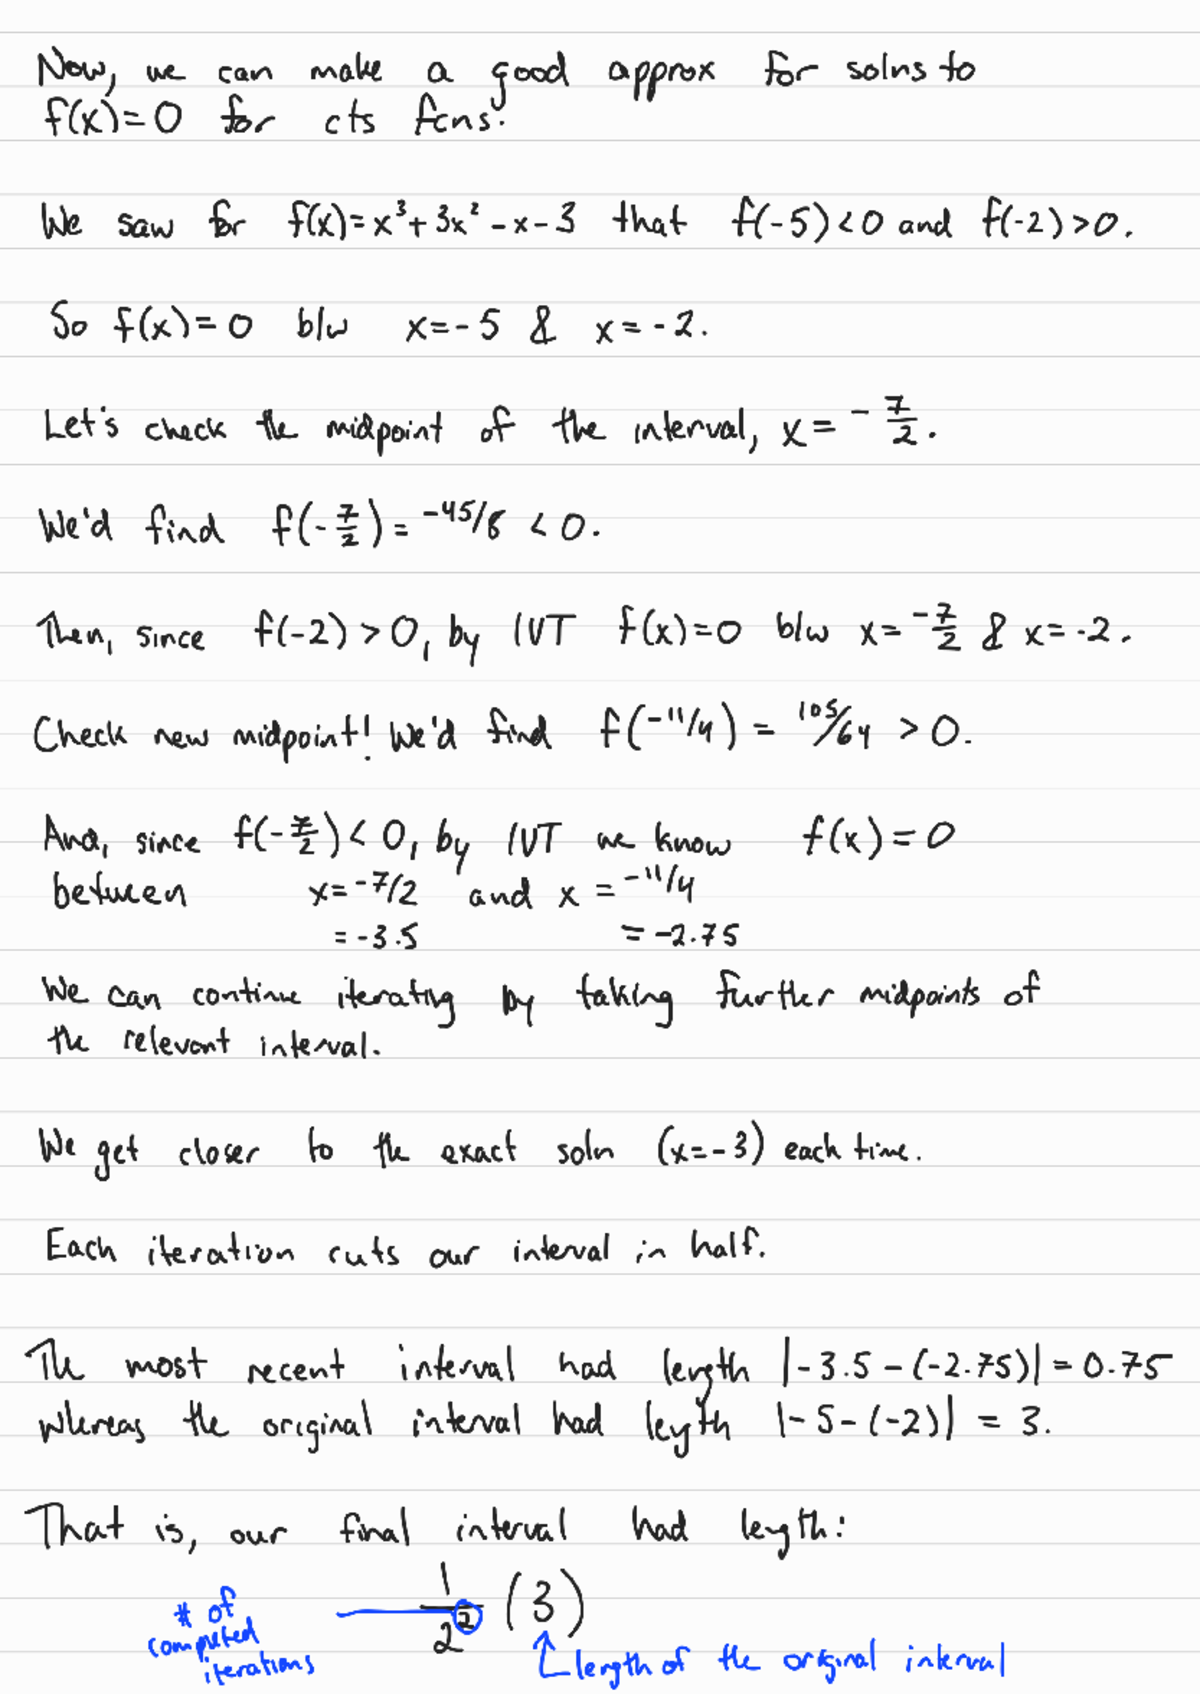 Now, we can make a good approx for solns to
f(x)=0 for cts fcns.
We saw for f(x)=x³+3x²-x-3 that f(-5)<0 and f(-2)>0.
So f(x)=0 b/w x=-5 & x=-2.
Let's check the midpoint of the interval, x=-7/2.
We'd find f(-7/2)=-45/8 <0.
Then, since f(-2)>0, by IVT f(x)=0 b/w x=-7/2 & x=-2.
Check new midpoint! We'd find f(-11/4) = 105/64 >0.
And, since f(-7/2)<0, by IVT we know f(x)=0
between x=-7/2 and x=-11/4
=-3.5 =-2.75
We can continue iterating by taking further midpoints of
the relevant interval.
We get closer to the exact soln (x=-3) each time.
Each iteration cuts our interval in half.
The most recent interval had length |-3.5-(-2.75)|=0.75
whereas the original interval had length |-5-(-2)| = 3.
That is, our final interval had length:
1/2² (3)
# of
computed
iterations
length of the original interval